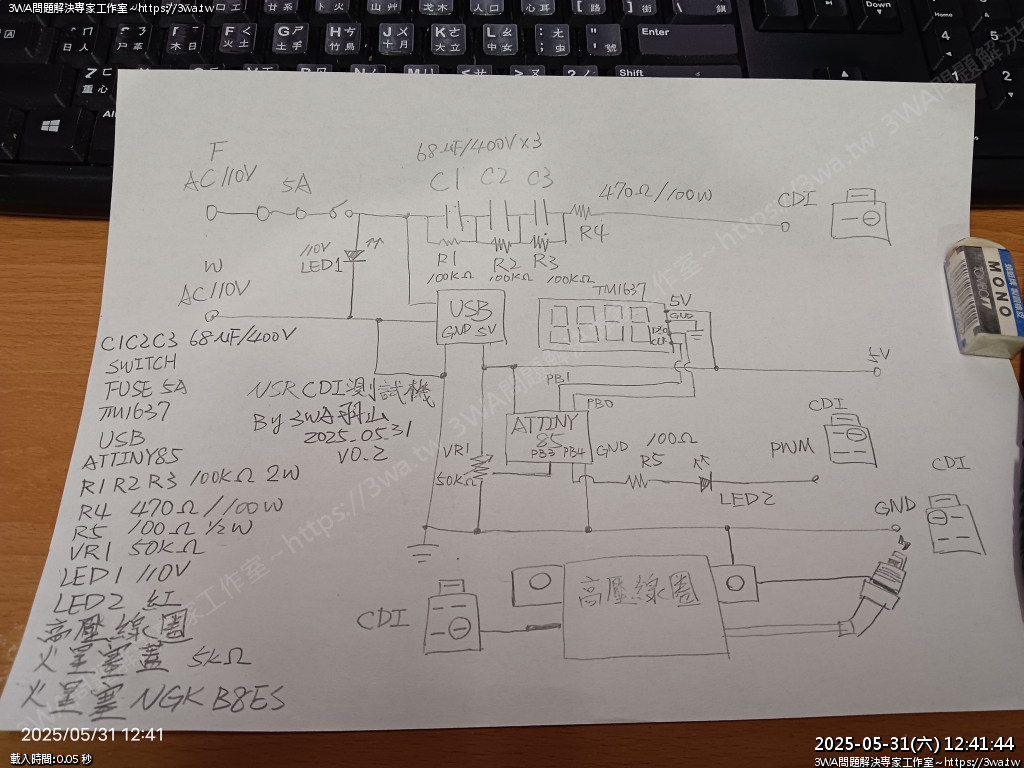 3WA問題解決專家工作室~https://3wa.tw
Enter
Shift
Alt
Home
Down
F
AC 110V
5A
68uF/400V x3
C1 C2 C3
470Ω/100W
CDI
R4
110V
LED1
R1 R2 R3
100KΩ 100KΩ 100KΩ
W
AC 110V
USB
GND 5V
TM1637
5V
GND
DIO
CLK
MONO
5V
C1C2C3 68uF/400V
SWITCH
FUSE 5A
TM1637
USB
ATTINY85
R1 R2 R3 100KΩ 2W
R4 470Ω/100W
R5 100Ω 1/2W
VR1 50KΩ
LED1 110V
LED2 紅
高壓線圈
火星塞蓋 5KΩ
火星塞 NGK B8ES
NSR CDI測試機
By 3WA羽山
2025.05.31
V0.2
PB1
PB0
ATTINY
85
PB3 PB4
GND
VR1
50KΩ
100Ω
R5
LED2
PWM
CDI
GND
CDI
CDI
高壓線圈
2025/05/31 12:41
載入時間:0.05 秒
2025-05-31(六) 12:41:44
3WA問題解決專家工作室~https://3wa.tw